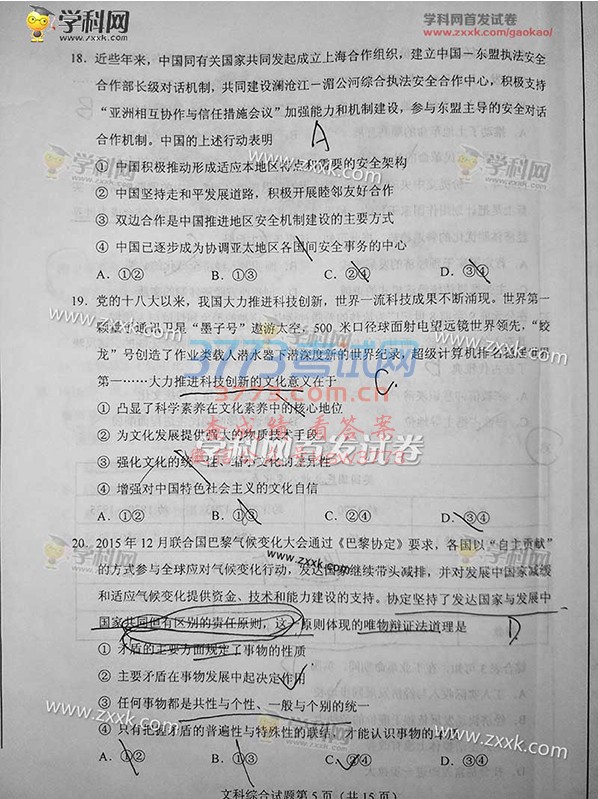 学科网
www.zxxk.com
学科网首发试卷
www.zxxk.com/gaokao/
18. 近些年来，中国同有关国家共同发起成立上海合作组织，建立中国—东盟执法安全
合作部长级对话机制，共同建设澜沧江—湄公河综合执法安全合作中心，积极支持
“亚洲相互协作与信任措施会议”加强能力和机制建设，参与东盟主导的安全对话
合作机制。中国的上述行动表明
A
① 中国积极推动形成适应本地区特点和需要的安全架构
② 中国坚持走和平发展道路，积极开展睦邻友好合作
③ 双边合作是中国推进地区安全机制建设的主要方式
④ 中国已逐步成为协调亚太地区各国间安全事务的中心
A．①② B．①③ C．②④ D．③④
19. 党的十八大以来，我国大力推进科技创新，世界一流科技成果不断涌现。世界第一
颗量子通讯卫星“墨子号”遨游太空，500 米口径球面射电望远镜世界领先，“蛟
龙”号创造了作业类载人潜水器下潜深度新的世界纪录，超级计算机排名稳居世界
第一……大力推进科技创新的文化意义在于
C
① 凸显了科学素养在文化素养中的核心地位
② 为文化发展提供强大的物质技术手段
③ 强化文化的统一性、缩小文化的差异性
④ 增强对中国特色社会主义的文化自信
A．①② B．①③ C．②④ D．③④
3773考试网
3773.com.cn
查成绩 看答案
学科网首发试卷
20. 2015 年 12 月联合国巴黎气候变化大会通过《巴黎协定》要求，各国以“自主贡献”
的方式参与全球应对气候变化行动，发达国家继续带头减排，并对发展中国家减缓
和适应气候变化提供资金、技术和能力建设的支持。协定坚持了发达国家与发展中
国家共同但有区别的责任原则，这一原则体现的唯物辩证法道理是
D
① 矛盾的主要方面规定了事物的性质
② 主要矛盾在事物发展中起决定作用
③ 任何事物都是共性与个性、一般与个别的统一
④ 只有把握矛盾的普遍性与特殊性的联结，才能认识事物的
A．①② B．①③ C．②④ D．③④
文科综合试题第 5 页（共 15 页）